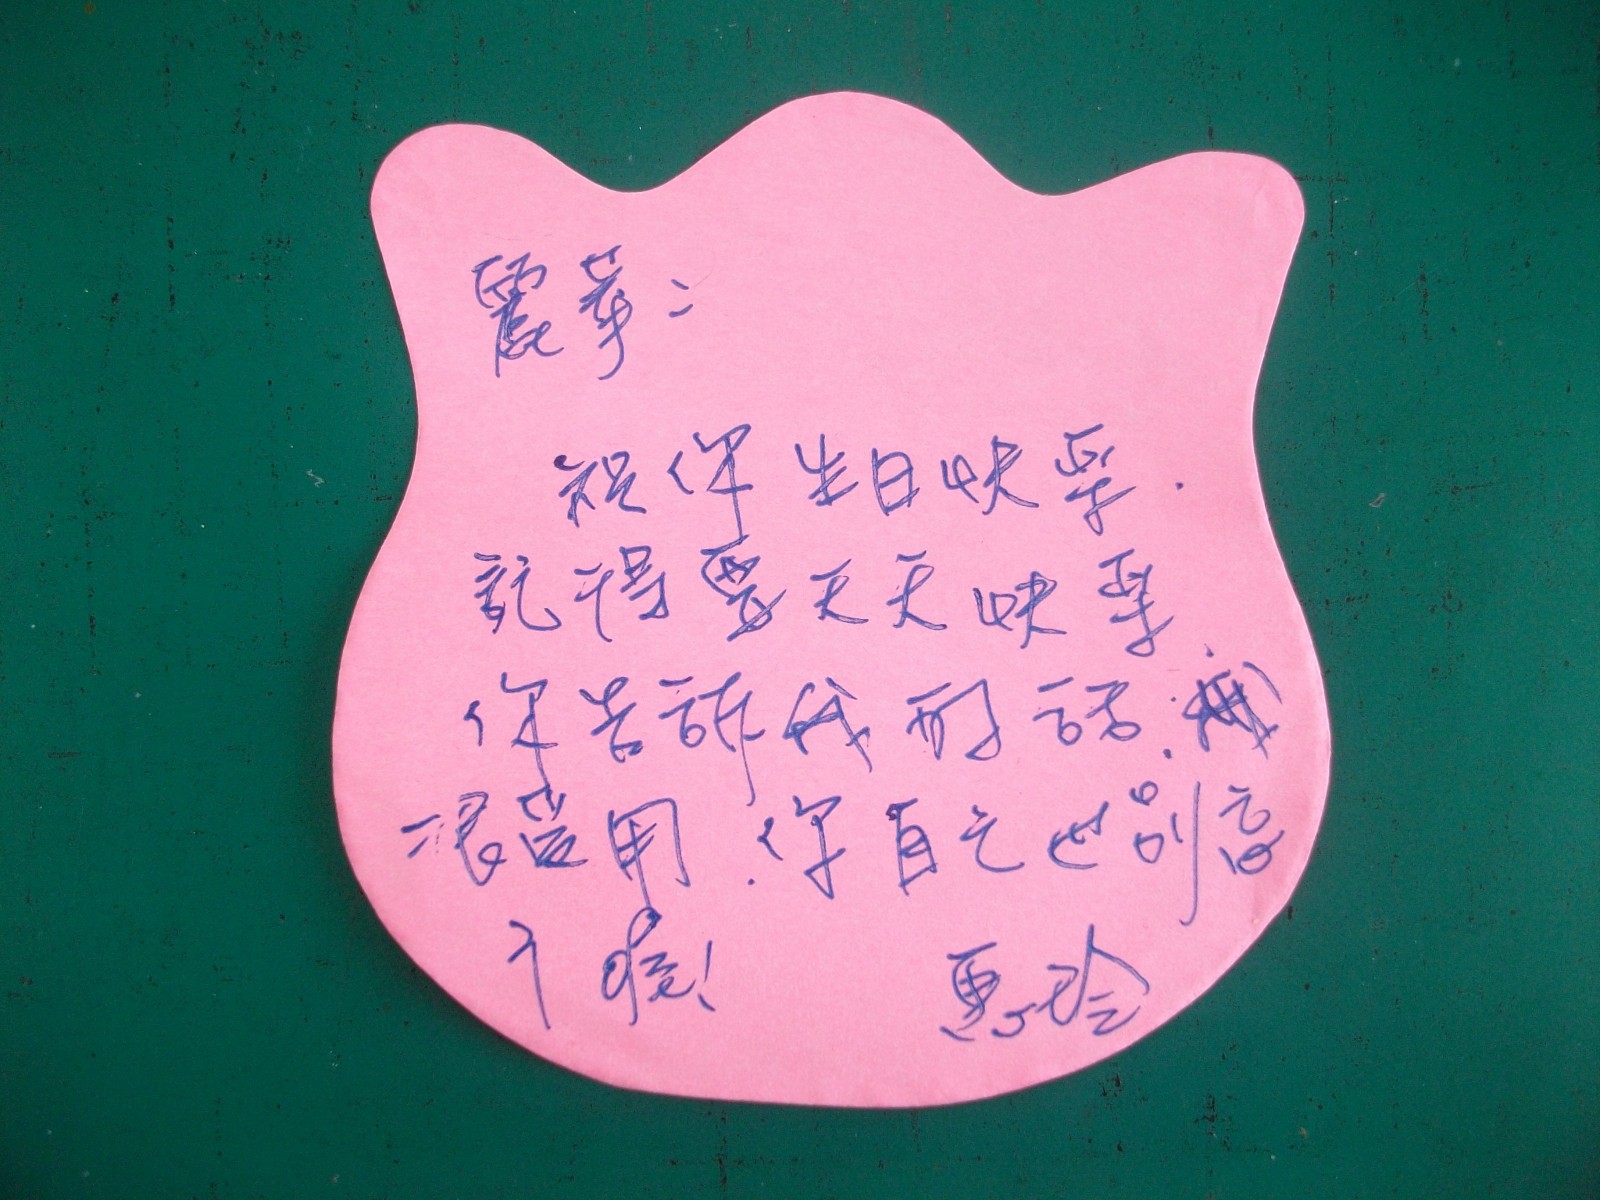 麗華：
祝你生日快樂.
記得要天天快樂.
你告訴我的話.
很受用.你自己也別忘
了哦!
惠玲